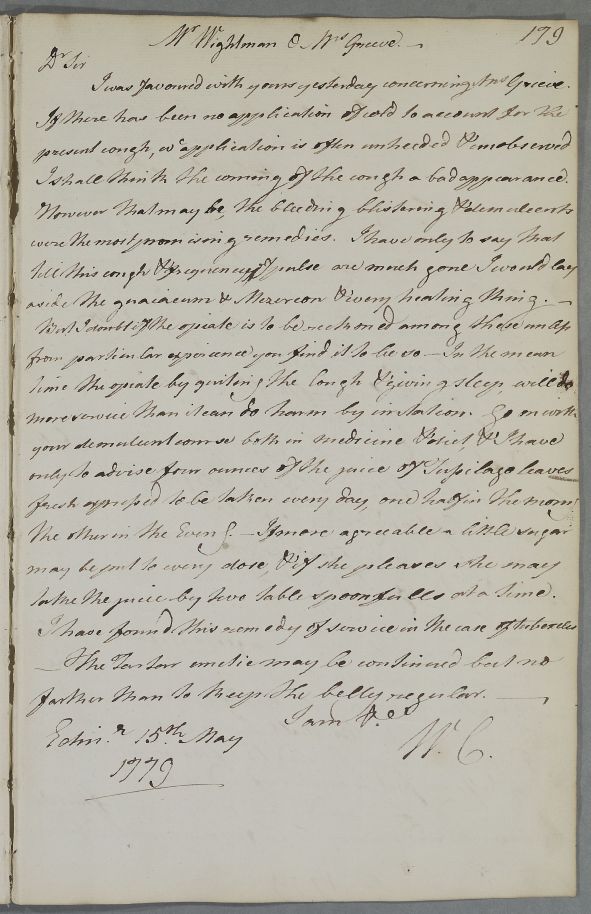 Mr. Wightman C Mrs Grieve.
179
Dr Sir
I was favoured with yours yesterday concerning Mrs Grieve.
If there has been no application of cold to account for the
present cough, wc application is often unheeded & unobserved
I shall think the coming of the cough a bad appearance.
However that may be, the bleeding blistering & demulcents
were the most promising remedies. I have only to say that
till this cough & frequency of pulse are much gone I would lay
aside the guaiacum & Mezereon & every heating thing. —
But I doubt if the opiate is to be reckoned among these unless
from particular experience you find it to be so — In the mean
time the opiate by quieting the Cough & giving sleep, will do
more service than it can do harm by irritation. Go on with
your demulcent course both in medicine & diet, & I have
only to advise four ounces of the juice of Tussilago leaves
fresh expressed to be taken every day, one half in the morng
the other in the Eveng. — If more agreeable a little sugar
may be put to every dose, & if she pleases she may
take the juice by two table spoonfulls at a time.
I have found this remedy of service in the case of tubercles
— The Tartar emetic may be continued but no
farther than to keep the belly regular. —
I am &c
Edinr. 15th May
W. C.
1779